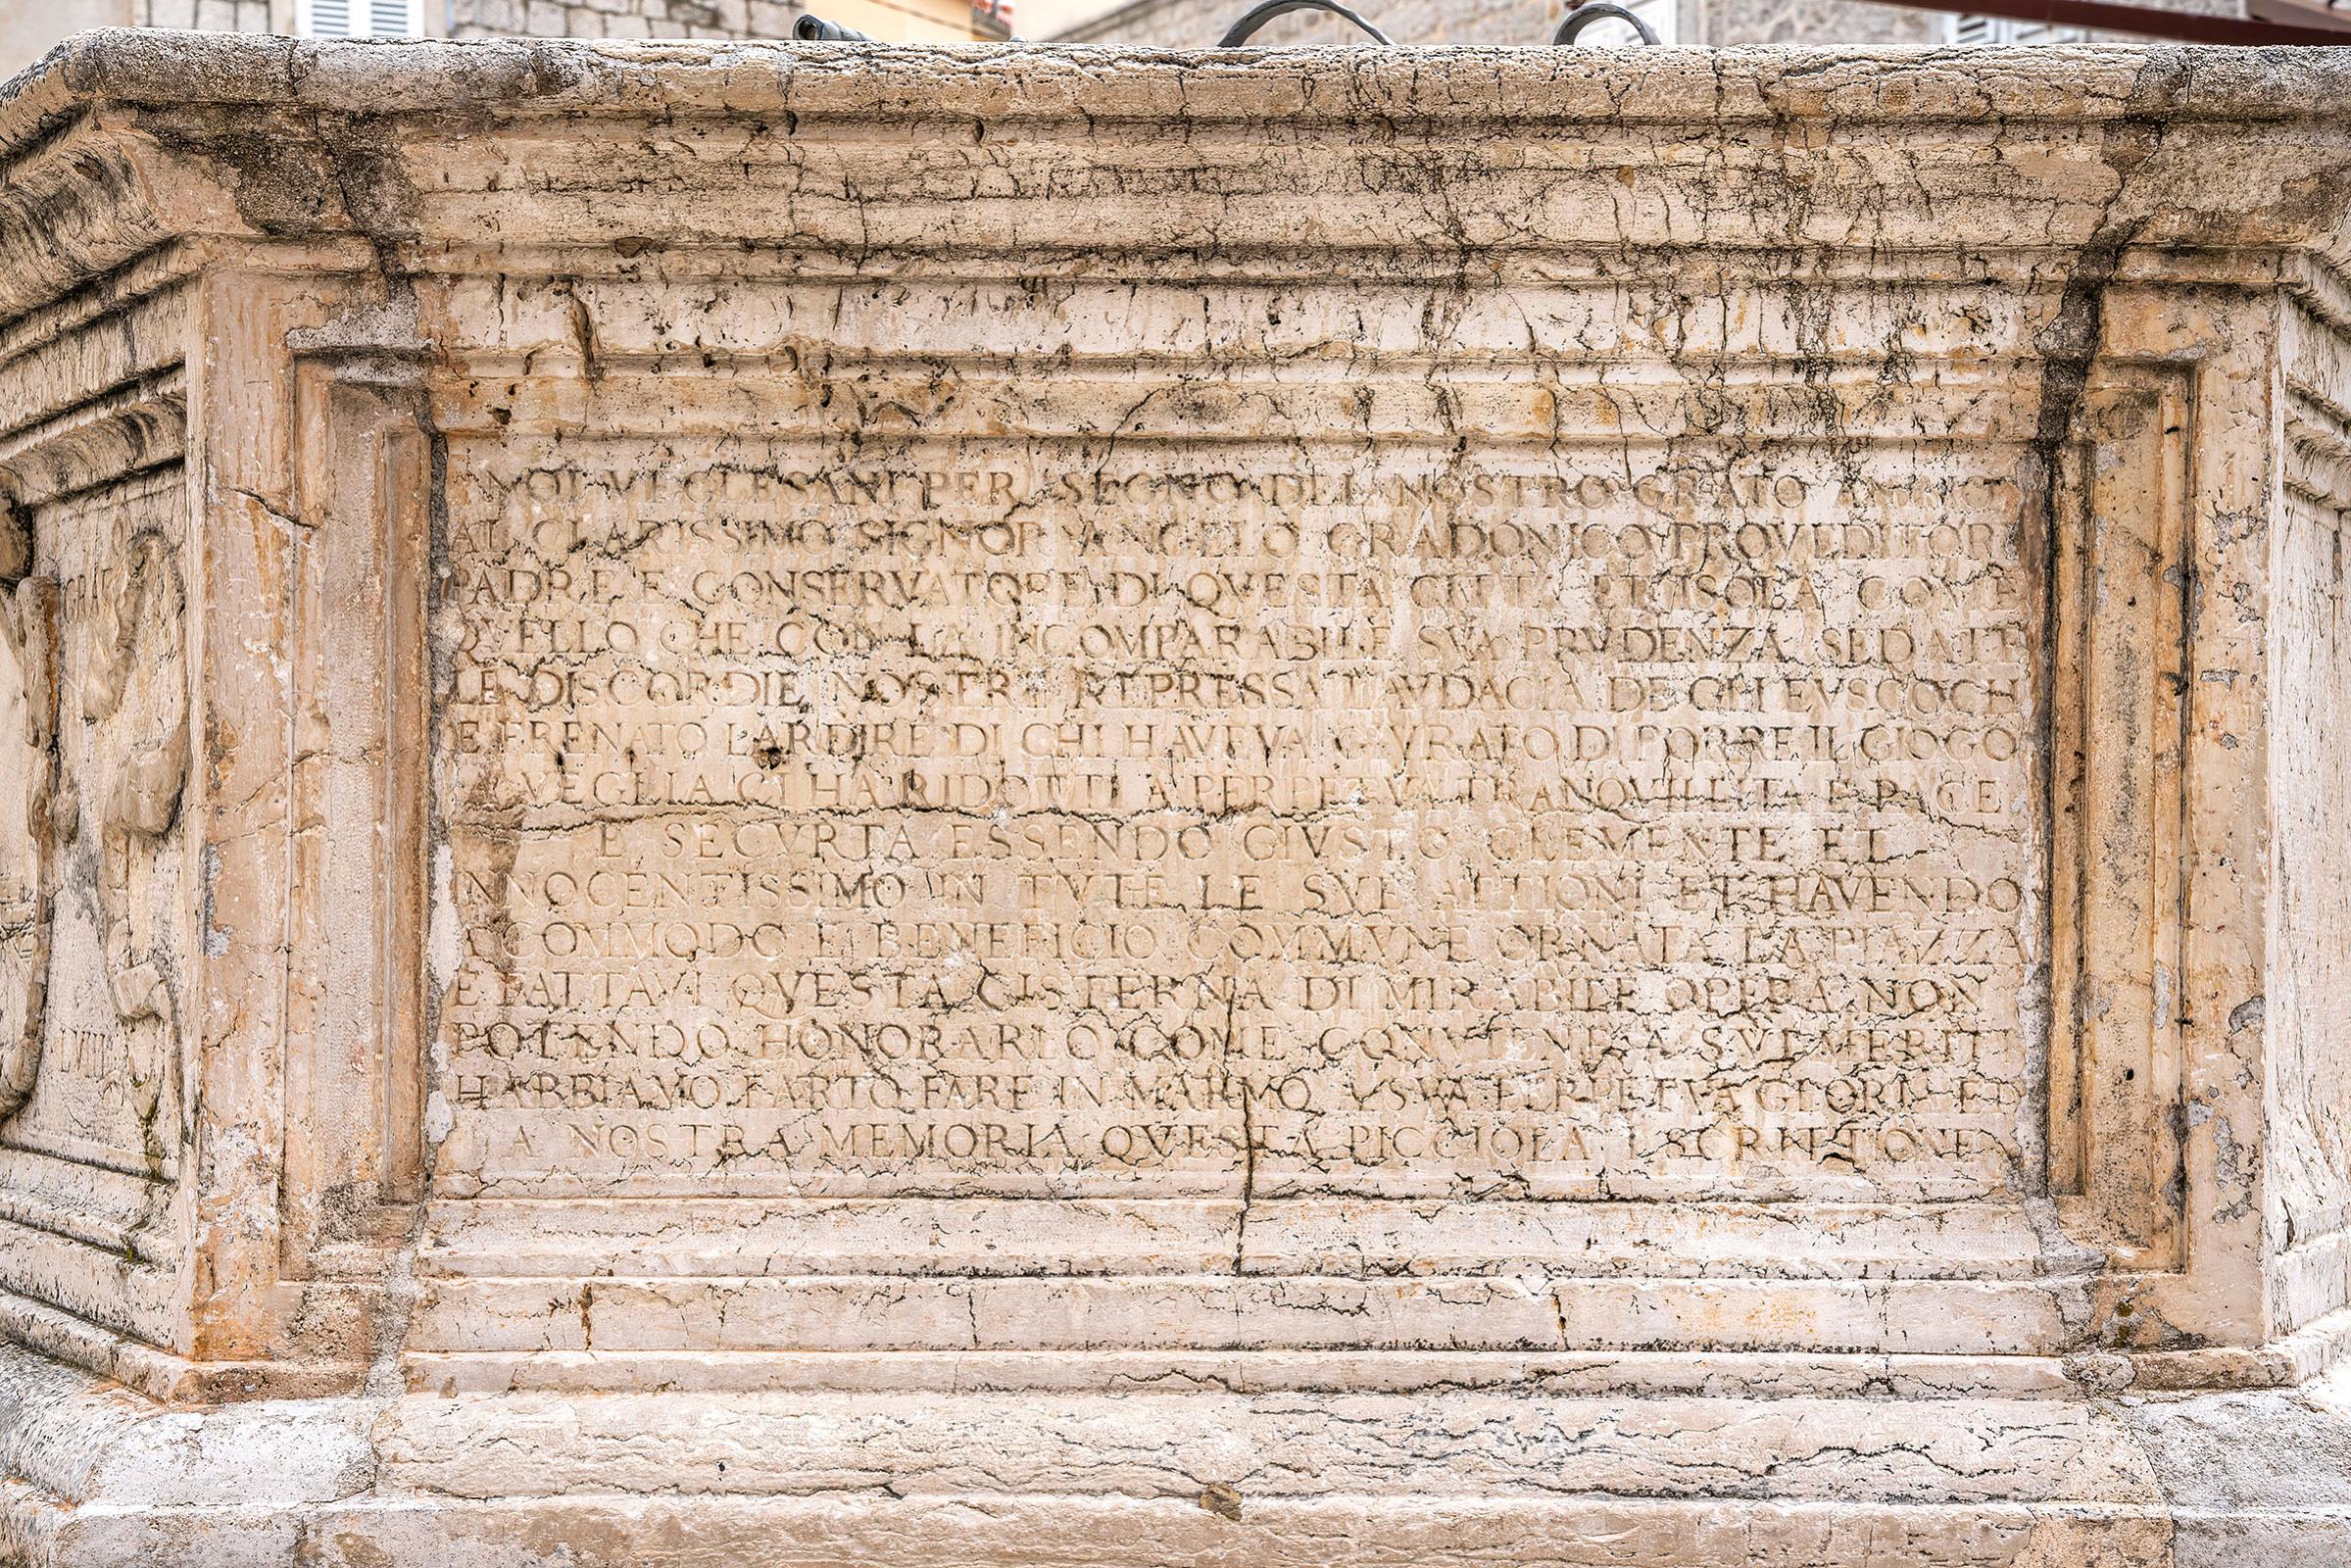 NOI VEGLESANI PER SEGNO DEL NOSTRO GRATO ANIMO
AL CLARISSIMO SIGNOR ANGELO GRADONICO PROVEDITOR
PADRE E CONSERVATORE DI QVESTA CITTA ET ISOLA COME
QVELLO CHE CON LA INCOMPARABILE SVA PRVDENZA SEDATE
LE DISCORDIE NOSTRE REPRESSA L AVDACIA DE GLI EVSCOCHI
E FRENATO LARDIRE DI CHI HAVEVA GIVRATO DI PORRE IL GIOGO
VEGLIA CI HA RIDOTTI A PERPETVA TRANQVILLITA E PACE
E SECVRTA ESSENDO GIVSTO CLEMENTE ET
INNOCENTISSIMO IN TVTE LE SVE ATTIONI ET HAVENDO
A COMMODO E BENEFICIO COMMVNE ORNATA LA PIAZZA
E FATTAVI QVESTA CISTERNA DI MIRABILE OPERA NON
POTENDO HONORARLO COME CONVIENE A SVI MERITI
HABBIAMO FARTO FARE IN MARMO A SVA PERPETVA GLORIA ED
A NOSTRA MEMORIA QVESTA PICCIOLA ISCRITTIONE